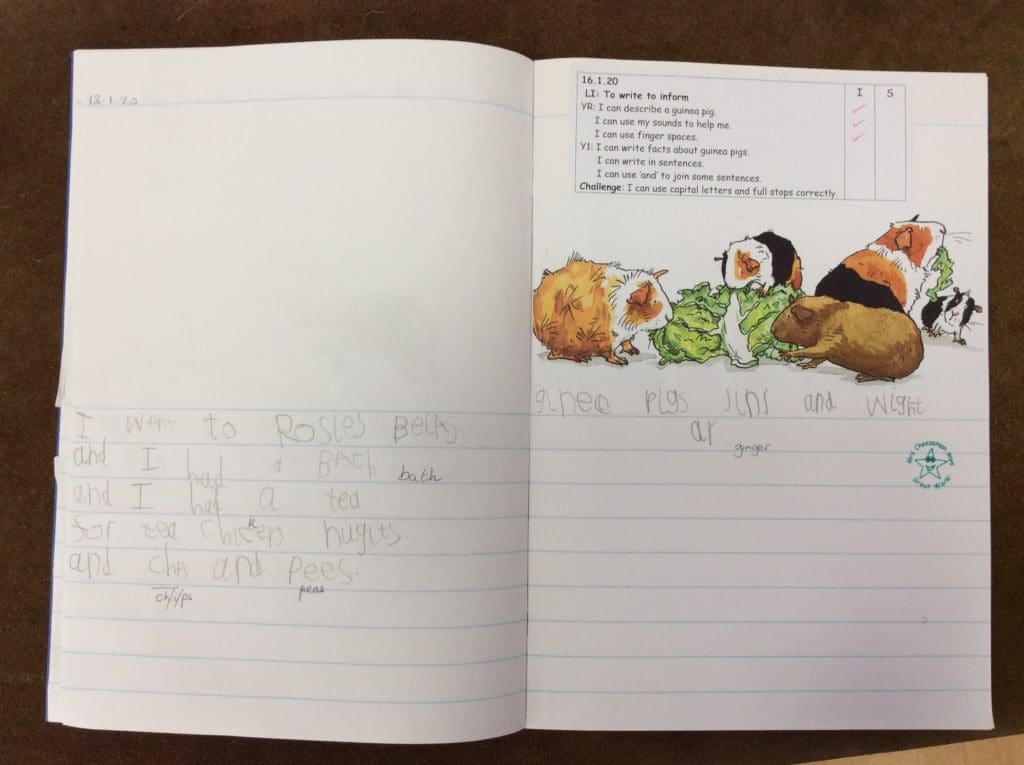 13.1.20
I went to Rosies
and I had a BAth
bath
and I had a tea
for tea chicken nugits.
k
and chps and pees.
ch/i/ps peas
16.1.20
I S
LI: To write to inform
YR: I can describe a guinea pig.
I can use my sounds to help me.
I can use finger spaces.
Y1: I can write facts about guinea pigs.
I can write in sentences.
I can use 'and' to join some sentences.
Challenge: I can use capital letters and full stops correctly.
gineo pigs jinj and wight
ar
ginger
Mrs Cheeseman says
Great Work